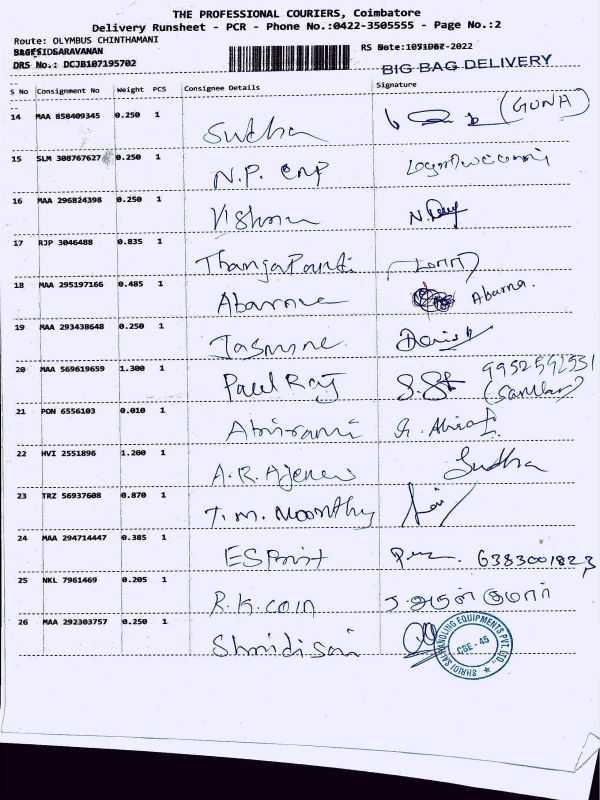 THE PROFESSIONAL COURIERS, Coimbatore
Delivery Runsheet - PCR - Phone No.:0422-3505555 - Page No.:2
Route: OLYMBUS CHINTHAMANI
SARAVANAN
RS Date: -2022
DRS No.: DCJB107195702
BIG BAG DELIVERY
S No Consignment No Weight PCS Consignee Details Signature
14 MAA 858409345 0.250 1 Sudha (GUNA)
15 SLM 308767627 0.250 1 N.P. ENP
16 MAA 296824398 0.250 1 Vishnu
17 RJP 3046488 0.835 1 ThangaPandi
18 MAA 295197166 0.485 1 Abarna Abarna.
19 MAA 293438648 0.250 1 Jasmine
9952592531
20 MAA 569619659 1.300 1 Paul Raj (Sankar)
21 PON 6556103 0.010 1 Abirami
22 HVI 2551896 1.200 1 A.R. Sudha
23 TRZ 56937608 0.870 1 T.M. Moorthy
24 MAA 294714447 0.385 1 ESPoint 6383001823
25 NKL 7961469 0.205 1 R.K. coin J. அருள் குமார்
26 MAA 292303757 0.250 1 Shridi Sai
SHRIDI SAI HANDLING EQUIPMENTS PVT. LTD.,
CBE - 45